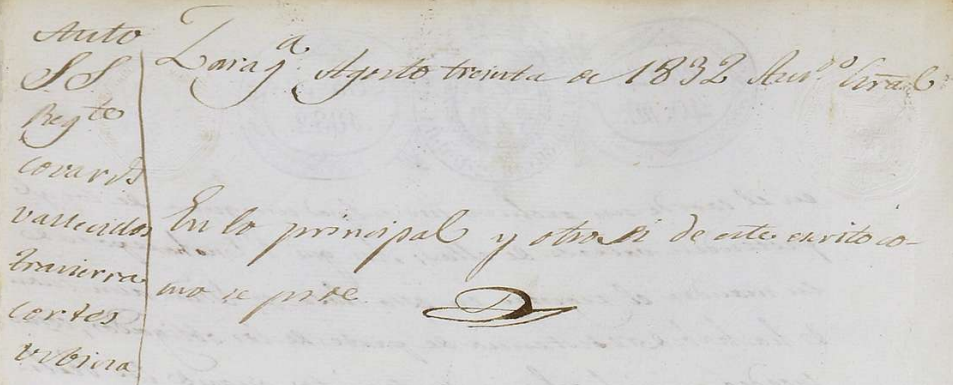 Auto
S S
Reg.te
covards
vallecidos
travierra
cortes
urbina
Zarag.a Agosto treinta de 1832 Au.o Gral
En lo principal y otro si de este escrito co-
mo se pide